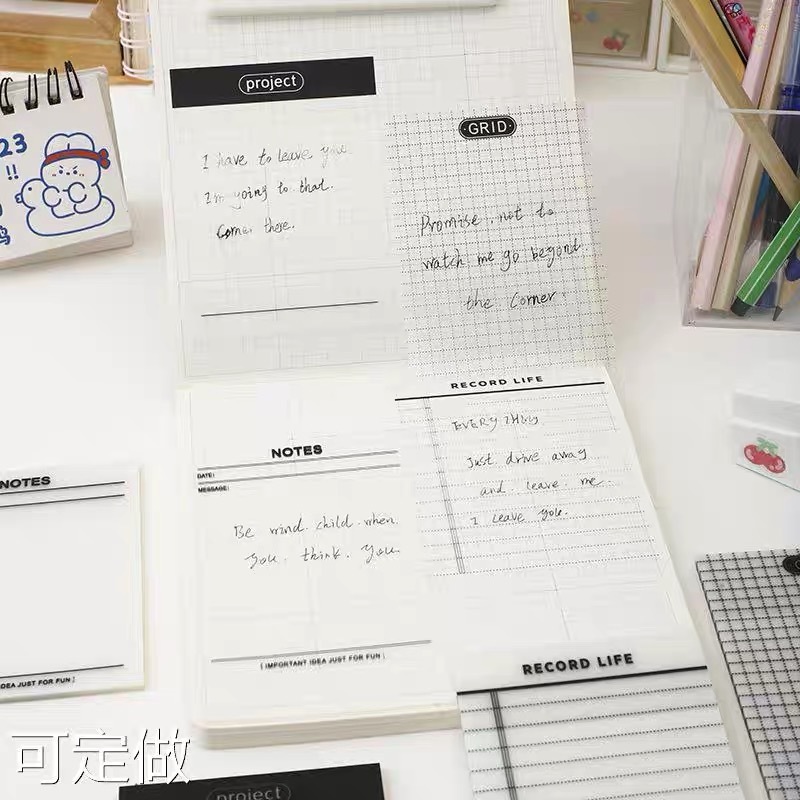 23
!!
project
I have to leave you
I'm going to that.
Come. there.
GRID
Promise. not to
watch me go beyond
the corner.
NOTES
DATE:
MESSAGE:
Be mind. child. when.
you. think. you.
[ IMPORTANT IDEA JUST FOR FUN ]
RECORD LIFE
EVERYTHING
Just drive away
and leave me.
I leave you.
NOTES
DEA JUST FOR FUN ]
RECORD LIFE
project
可定做